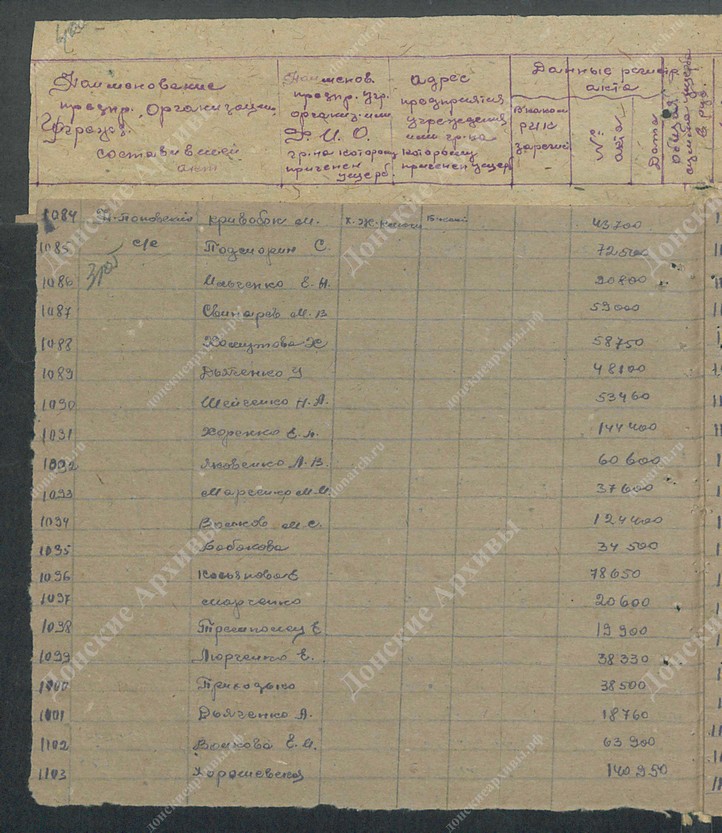 Наименование
предпр. Организации
Учрежд.
составивший
акт
Наименов.
предпр. учр.
организ. или
Ф. И. О.
гр-на которому
причинен
ущерб
адрес
предприятия
учреждения
или гр-на
которому
причинен ущерб
Данные регистр
акта
РИК
№
акта
Дата
общая
сумма ущерба
в руб.
1084 кривобок м. 43700
1085 с/с Подморин С.
1086 Ильченко Е. Н. 20800
1087 Свинарев М. В 59000
1088 Хомутова Х 58750
1089 Дьяченко У 48100
1090 Шейченко Н. А. 53460
1091 Хоренко Е. А. 144400
1092 Яковенко А. В. 60600
1093 Марченко М. И. 37600
1094 Волков М. С. 124400
1095 Бабакова 34500
1096 78650
1097 марченко 20600
1098 19900
1099 Юрченко Е. 38330
1100 Приходько 38500
1101 Дьяченко А. 18760
1102 Волкова Е. И. 63900
1103 140950
Донские Архивы
донскиеархивы.рф
donarch.ru